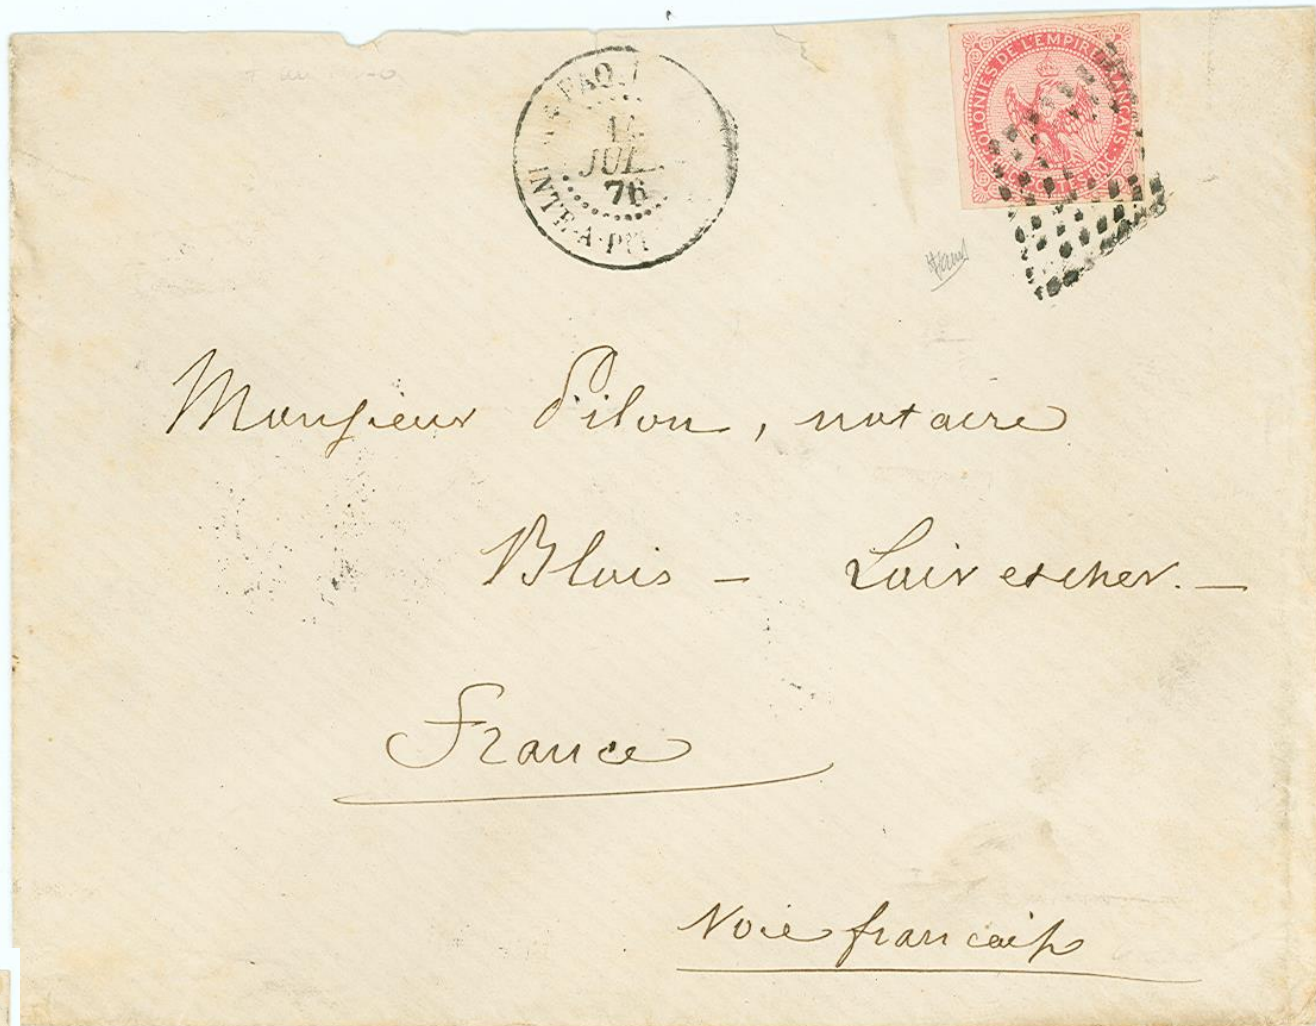 PAQ.
JUIL.
76
INTE-A-PIT
COLONIES DE L'EMPIRE FRANÇAIS
POSTES · 80C ·
Monsieur Pilon, notaire
Blois - Loir et cher. -
France
Voie française